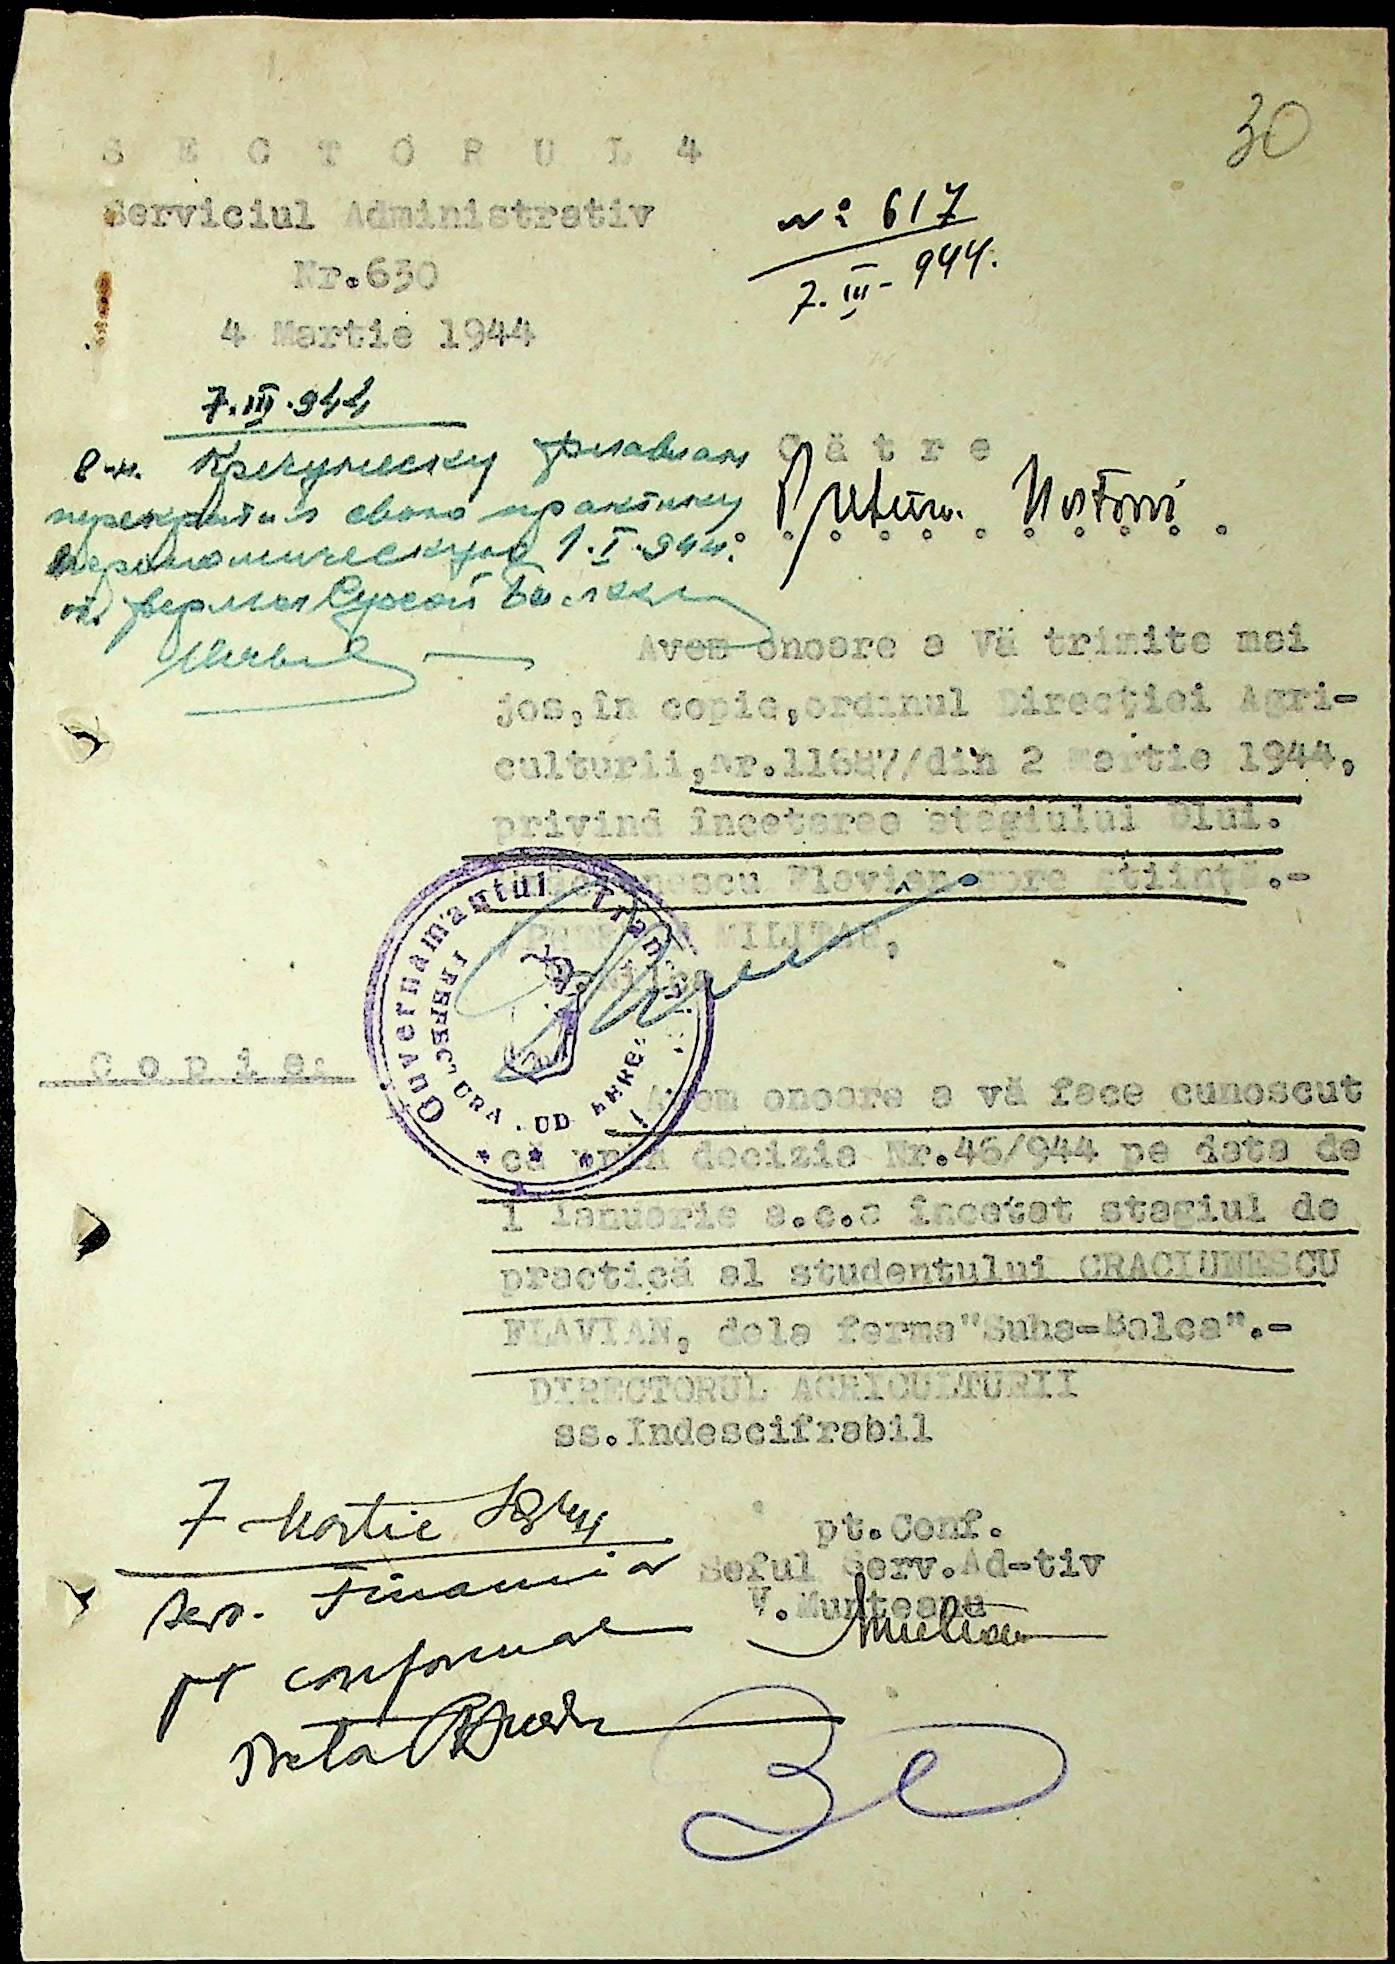 30
S E C T O R U L 4
Serviciul Administrativ
Nr.630
4 Martie 1944
№ 617
7.III-944.
7.III.944
Крачунеску Флавиан
прекратил свою практику
1.I.944.
фермы Сухой Балки
C ă t r e
Avem onoare a Vă trimite mai
jos,în copie,ordinul Direcţiei Agri-
culturii,nr.11687/din 2 Martie 1944,
privind încetarea stagiului Dlui.
Flavian spre ştiinţă.-
MILITAR,
Guvernământul Trans
PREFECTURA JUD
C o p i e:
Avem onoare a vă face cunoscut
că prin decizie Nr.46/944 pe data de
1 Ianuarie a.c.a încetat stagiul de
practică al studentului CRACIUNESCU
FLAVIAN, dela ferma"Suha-Balca".-
DIRECTORUL AGRICULTURII
ss.Indescifrabil
7 Martie
Serv. Financiar
pt conformare
pt.Conf.
Seful Serv.Ad-tiv
V.Munteanu